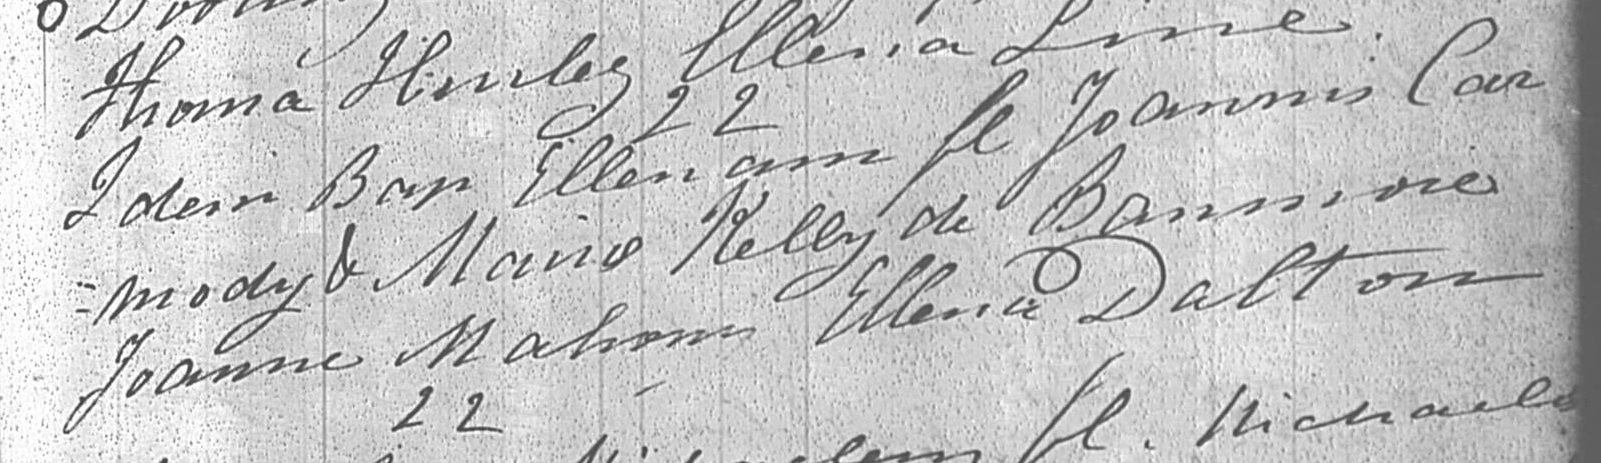 Thoma Hurley Ellena Line.
22
Idem Bap Ellenam fl Joannis Car
=mody & Maria Kelly de Banmore
Joanne Mahony Ellena Dalton
22
fl. Michaelis